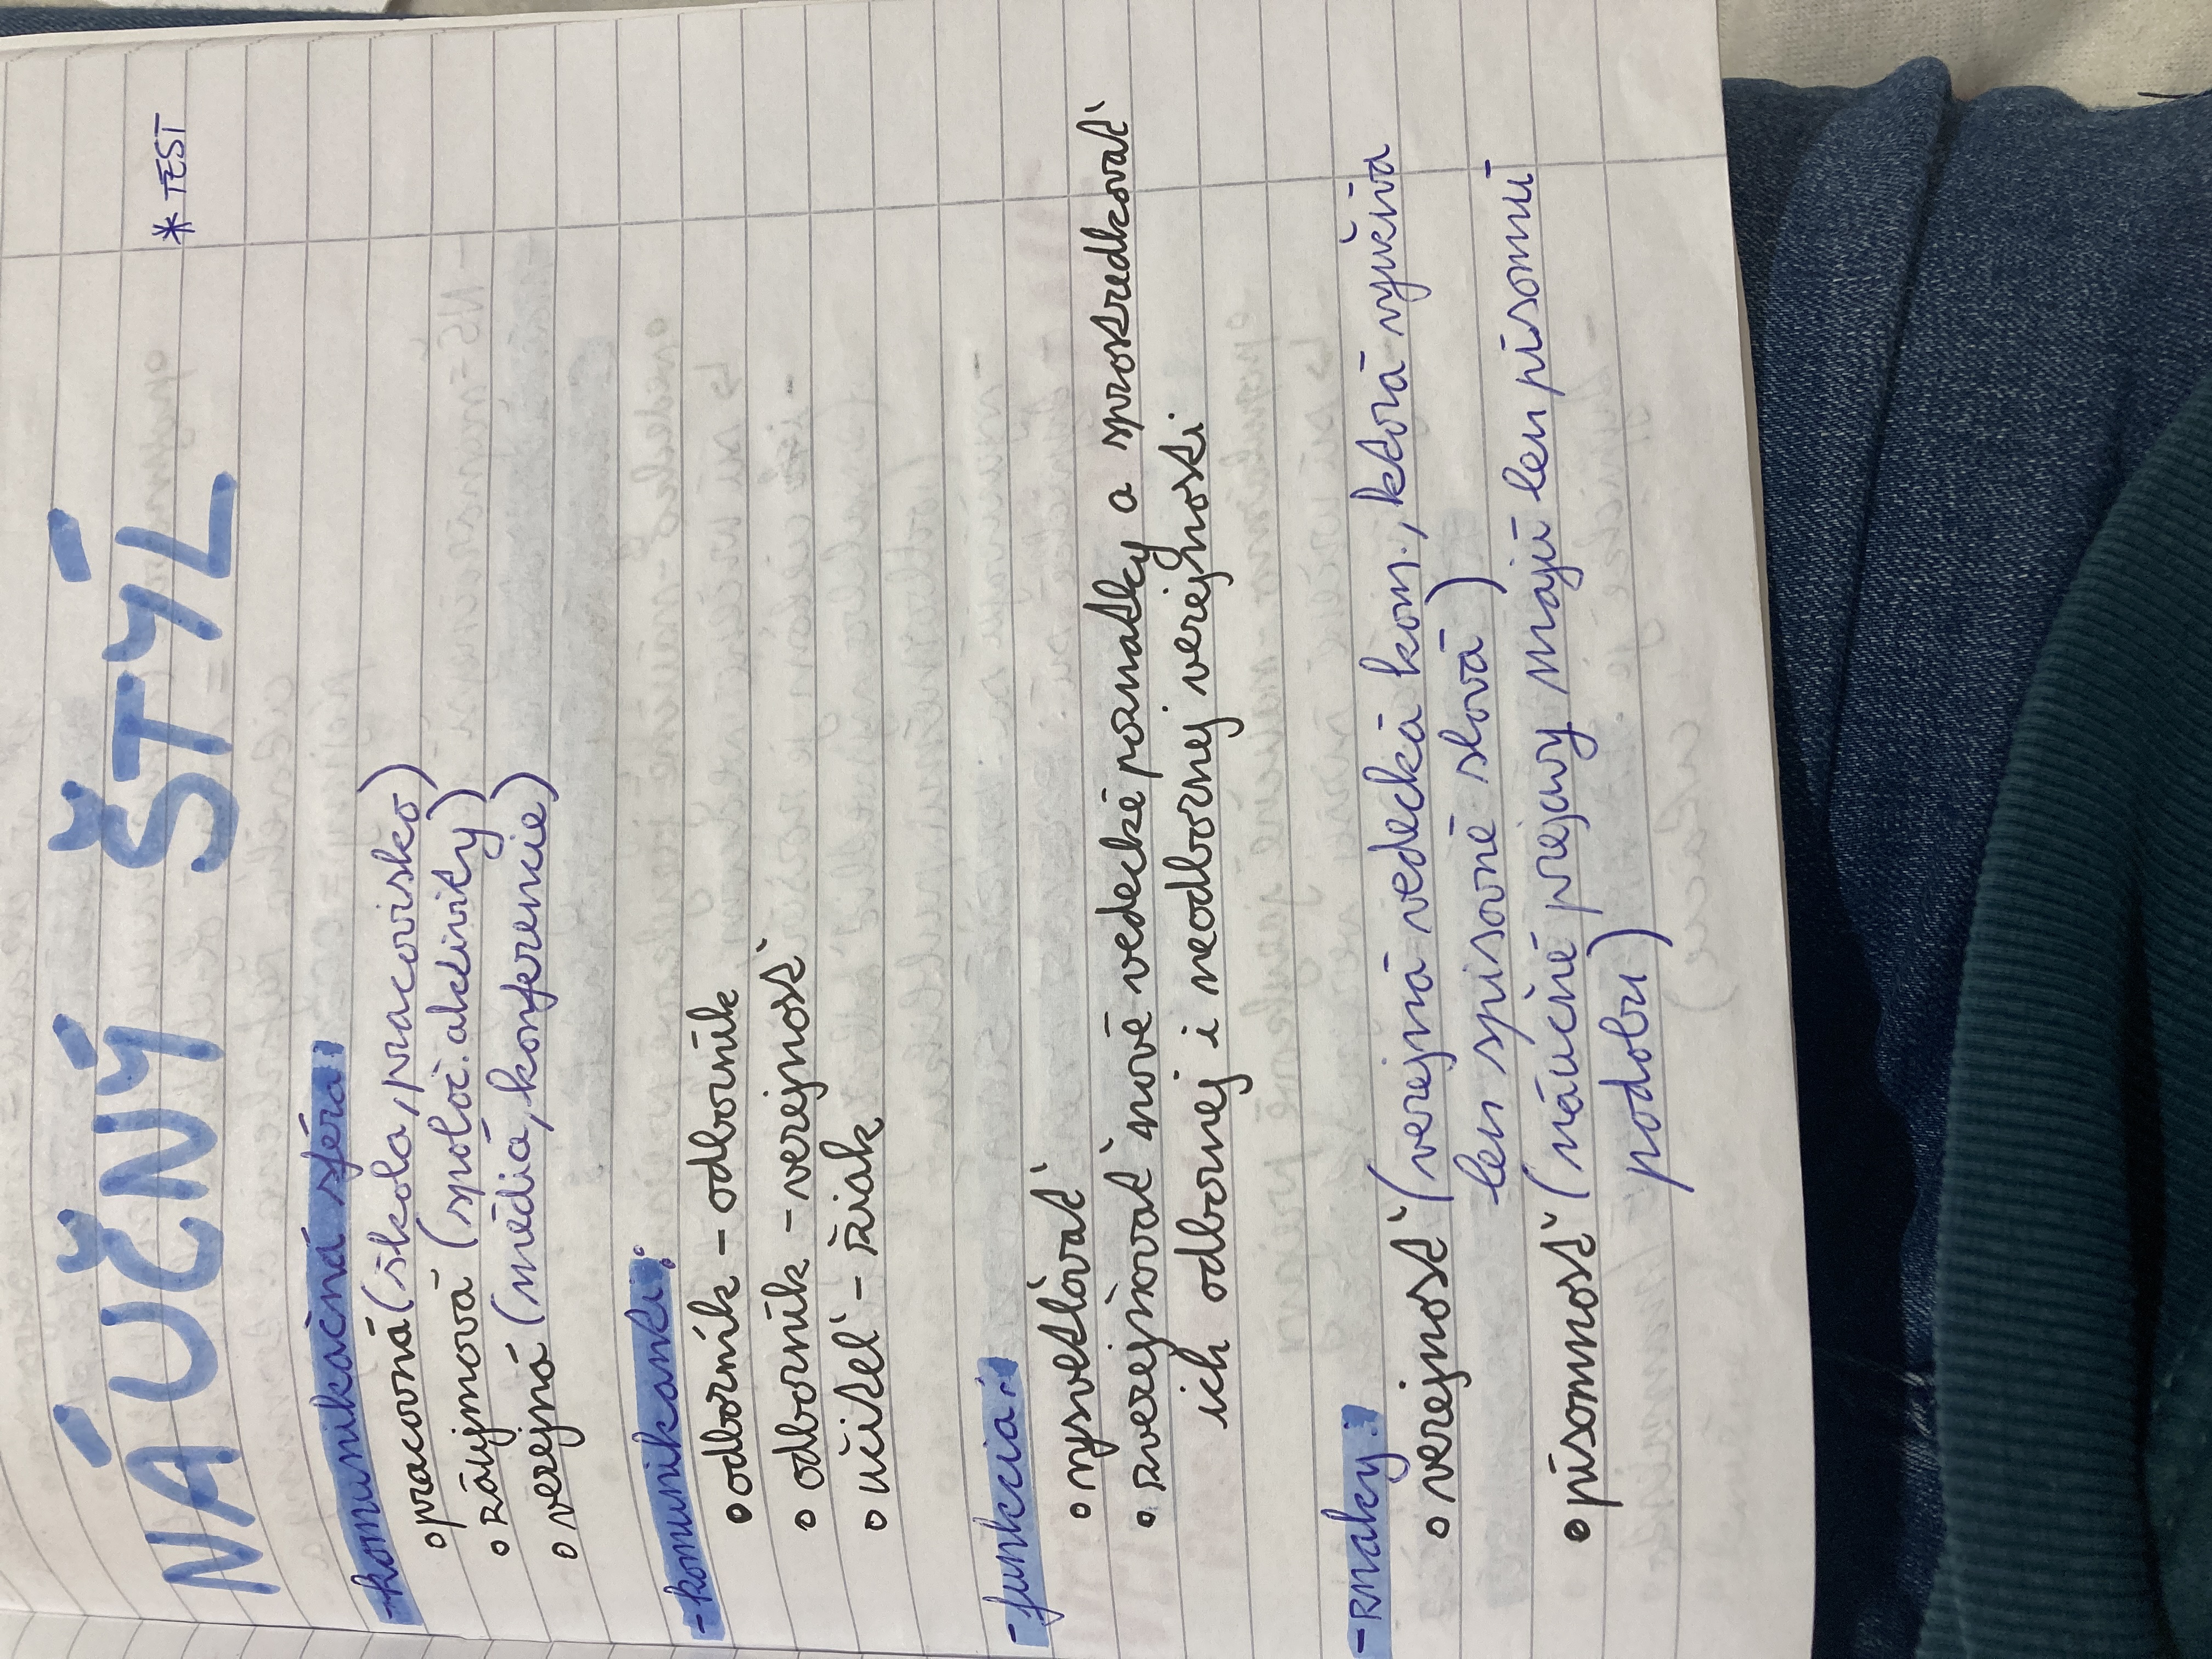 NÁUČNÝ ŠTÝL
* TEST
-komunikačná sféra:
pracovná (škola, pracovisko)
záujmová (spoloč. aktivity)
verejná (médiá, konferencie)
-komunikanti:
odborník - odborník
odborník - verejnosť
učiteľ - žiak
-funkcia:
vysvetľovať
zverejňovať nové vedecké poznatky a sprostredkovať
ich odbornej i neodbornej verejnosti
-znaky:
verejnosť (verejná vedecká kom., ktorá využíva
len spisovné slová)
písomnosť (náučné prejavy majú len písomnú
podobu)